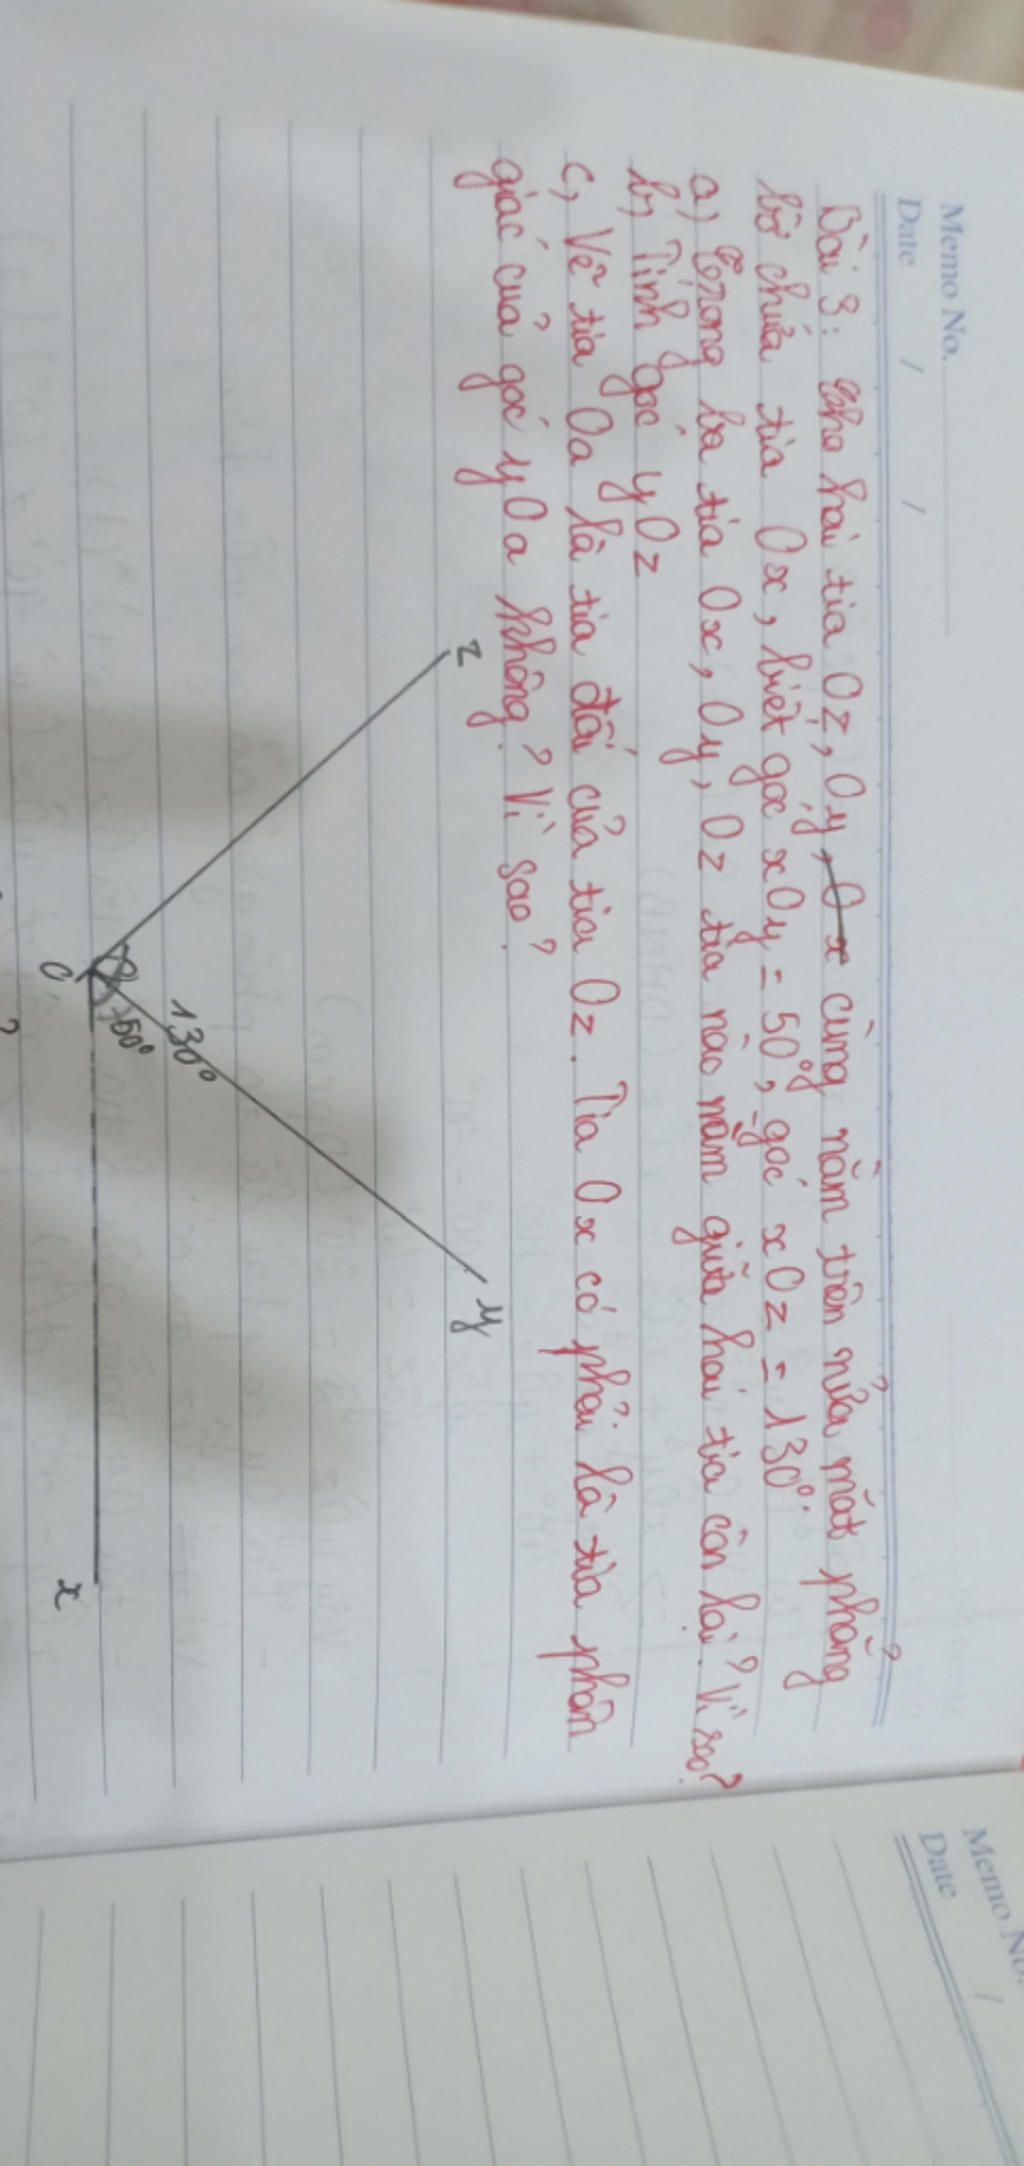 Memo No.
Date / /
Bài 3: Cho hai tia Oz, Oy, Ox cùng nằm trên nửa mặt phẳng
bờ chứa tia Ox, biết góc xOy = 50°, góc xOz = 130°.
a, Trong ba tia Ox, Oy, Oz tia nào nằm giữa hai tia còn lại? Vì sao?
b, Tính góc yOz
c, Vẽ tia Oa là tia đối của tia Oz. Tia Ox có phải là tia phân
giác của góc yOa không? Vì sao?
z
y
130°
50°
O
x
Memo No.
Date /